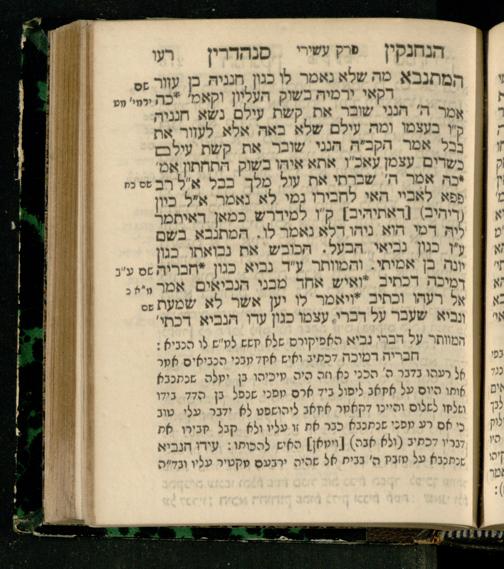 הנחנקין פרק עשירי סנהדרין רעו
המתנבא מה שלא נאמר לו כגון חנניה בן עזור שם
דקאי ירמיה בשוק העליון וקאמ׳ *כה ירמי׳ מט
אמר ה׳ הנני שובר את קשת עילם נשא חנניה
ק״ו בעצמו ומה עילם שלא באה אלא לעזור את
בבל אמר הקב״ה הנני שובר את קשת עילם
כשדים עצמן עאכ״ו אתא איהו בשוק התחתון אמ׳
*כה אמר ה׳ שברתי את עול מלך בבל א״ל רב שם כח
פפא לאביי האי לחבירו נמי לא נאמר א״ל כיון
(דיהיב) [דאתיהיב] ק״ו למידרש כמאן דאיתמר
ליה דמי הוא ניהו דלא נאמר לו. המתנבא בשם
ע״ז כגון נביאי הבעל. הכובש את נבואתו כגון
יונה בן אמיתי. והמוותר ע״ד נביא כגון *חבריה שם ע״ב
דמיכה דכתיב *ואיש אחד מבני הנביאים אמר מ״א כ
אל רעהו וכתיב *ויאמר לו יען אשר לא שמעת שם
ונביא שעבר על דברי עצמו כגון עדו הנביא דכתי׳
המוותר על דברי נביא האפיקורס שלא חשש למ״ש לו הנביא:
חבריה דמיכה דכתיב ואיש אחד מבני הנביאים אמר
אל רעהו בדבר ה׳ הכני נא וזה היה מיכיהו בן ימלה שנתנבא
אותו היום על אחאב ליפול ביד ארם מפני שנפל בן הדד בידו
ושלחו לשלום והיינו דקאמר אחאב ליהושפט לא ידבר עלי טוב
כי אם רע מפני שנתנבא כבר את זו עליו ולא קבל חבירו את
דבריו דכתיב (ולא אבה) [וימאן] האיש להכותו: עידו הנביא
שנתנבא על מזבח ה׳ בבית אל שהיה ירבעם מקטיר עליו ובד״ה